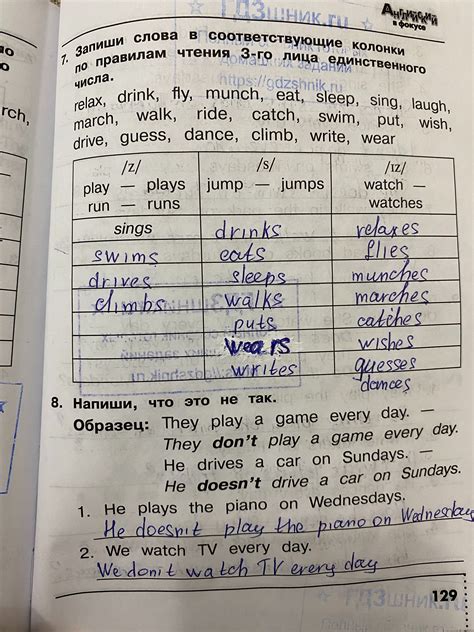 ГДЗшник.ru
Английский
в фокусе
7. Запиши слова в соответствующие колонки
по правилам чтения 3-го лица единственного
числа.
https://gdzshnik.ru
relax, drink, fly, munch, eat, sleep, sing, laugh,
march, walk, ride, catch, swim, put, wish,
drive, guess, dance, climb, write, wear
/z/ /s/ /ɪz/
play — plays jump — jumps watch —
run — runs watches
sings drinks relaxes
swims eats flies
drives sleeps munches
climbs walks marches
puts catches
wears wishes
writes guesses
dances
8. Напиши, что это не так.
Образец: They play a game every day. —
They don't play a game every day.
He drives a car on Sundays. —
He doesn't drive a car on Sundays.
1. He plays the piano on Wednesdays.
He doesn't play the piano on Wednesday
2. We watch TV every day.
We don't watch TV every day
129
ГДЗшник.ru